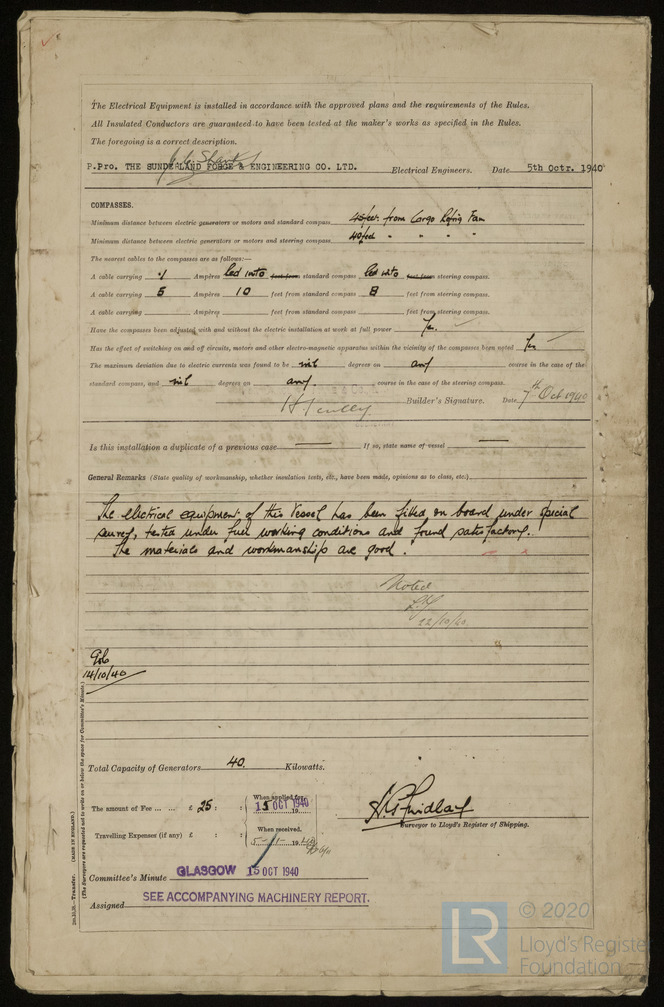 The Electrical Equipment is installed in accordance with the approved plans and the requirements of the Rules.
All Insulated Conductors are guaranteed to have been tested at the maker's works as specified in the Rules.
The foregoing is a correct description.
P.Pro. THE SUNDERLAND FORGE & ENGINEERING CO. LTD. Electrical Engineers. Date 5th Octr. 1940
COMPASSES.
Minimum distance between electric generators or motors and standard compass 45 feet from Cargo Refrig Fan
Minimum distance between electric generators or motors and steering compass 40 feet " " " "
The nearest cables to the compasses are as follows:—
A cable carrying .1 Ampères led into feet from standard compass led into feet from steering compass.
A cable carrying 5 Ampères 10 feet from standard compass 8 feet from steering compass.
A cable carrying Ampères feet from standard compass feet from steering compass.
Have the compasses been adjusted with and without the electric installation at work at full power Yes.
Has the effect of switching on and off circuits, motors and other electro-magnetic apparatus within the vicinity of the compasses been noted Yes
The maximum deviation due to electric currents was found to be nil degrees on any course in the case of the
standard compass, and nil degrees on any. course in the case of the steering compass.
Builder's Signature. Date 7th Oct. 1940
Is this installation a duplicate of a previous case — If so, state name of vessel —
General Remarks (State quality of workmanship, whether insulation tests, etc., have been made, opinions as to class, etc.)
The electrical equipment of this Vessel has been fitted on board under special
survey, tested under full working conditions and found satisfactory.
The materials and workmanship are good.
Noted
22/10/40
14/10/40
Total Capacity of Generators 40. Kilowatts.
The amount of Fee ... ... £ 25 : : When applied for,
15 OCT 1940
Travelling Expenses (if any) £ : : When received,
Surveyor to Lloyd's Register of Shipping.
Committee's Minute GLASGOW 15 OCT 1940
Assigned SEE ACCOMPANYING MACHINERY REPORT.
Transfer. (MADE IN ENGLAND.)
(The Surveyors are requested not to write on or below the space for Committee's Minute.)
LR © 2020
Lloyd's Register
Foundation